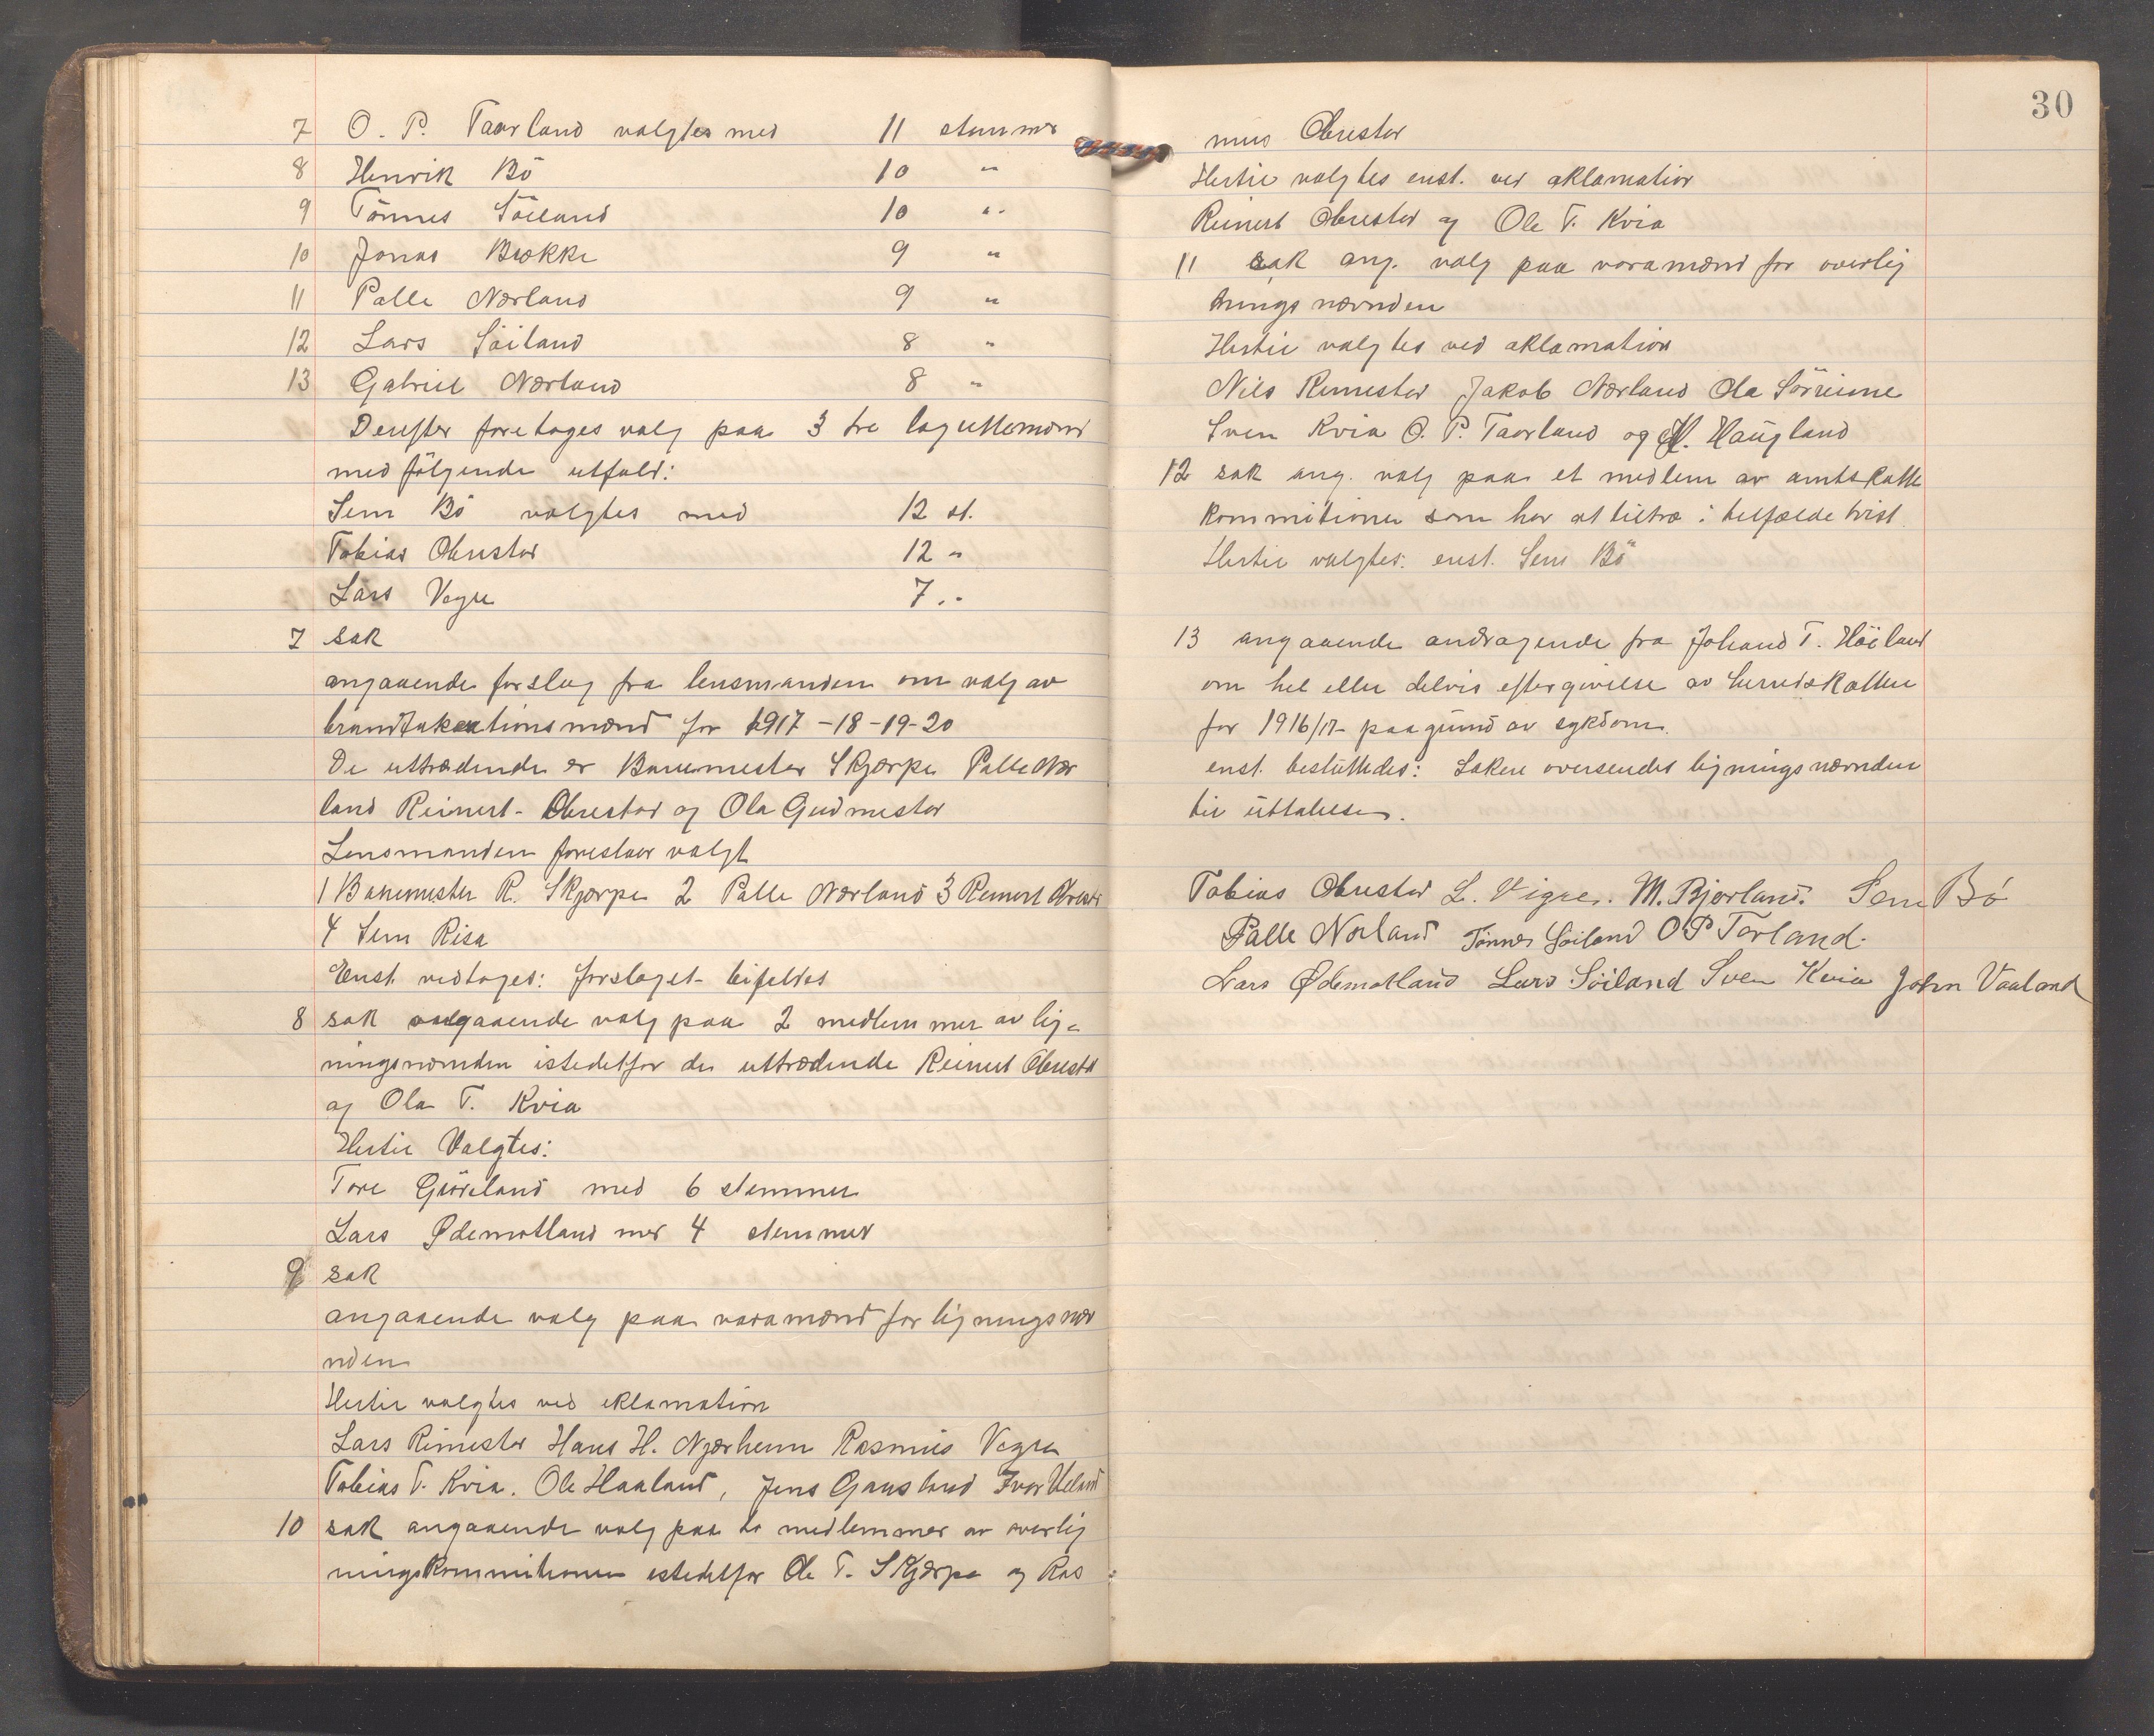 7 O. P. Taarland valgtes med 11 stemmer
8 Henrik Bö 10 "
9 Tönnes Söiland 10 "
10 Jonas Brække 9 "
11 Palle Nærland 9 "
12 Lars Söiland 8 "
13 Gabriel Nærland 8 "
Derefter foretages valg paa 3 tre lagrettemænd
med fölgende utfald:
Sem Bö valgtes med 12 st.
Tobias Obrestad 12 "
Lars Vigre 7 "
7 sak
angaaende forslag fra lensmanden om valg av
brandtakstionsmænd for 1917-18-19-20
De uttrædende er Banemester Skjærpe Palle Nær
land Reinert Obrestad og Ola Gudmestad
Lensmanden foreslaar valgt
1 Banemester R. Skjærpe 2 Palle Nærland 3 Reinert Obrest
4 Sem Risa
Enst. vedtages: forslaget bifaldes
8 sak angaaende valg paa 2 medlemmer av lig-
ningsnævnden istedetfor de uttrædende Reinert Obrestd
og Ola T. Kvia
Hertil Valgtes:
Tore Grödeland med 6 stemmer
Lars Ødemotland med 4 stemmer
9 sak
angaaende valg paa varamænd for ligningsnæv
nden
Hertil valgtes ved aklamation
Lars Rimestad Hans H. Njærheim Rasmus Vigre
Tobias T. Kvia. Ole Haaland, Jens Gausland Ivar Ueland
10 sak angaaende valg paa to medlemmer av overlig
ningskommitionen istedetfor Ole T. Skjærpe og Ras
30
mus Obrestad
Hertil valgtes enst. ved aklamation
Reinert Obrestad og Ole T. Kvia
11 sak ang. valg paa varamænd for overlig
nings nævnden
Hertil valgtes ved aklamation
Nils Rimestad Jakob Nærland Ola Sörreime
Sven Kvia O. P. Taarland og H. Haugland
12 sak ang. valg paa et medlem av amtskatte
kommitionen som har at tiltræ i tilfælde tvist
Hertil valgtes: enst. Sem Bö
13 angaaende andragende fra Johans T. Höiland
om hel eller delvis eftergivelse av herredskatten
for 1916/17 paagrund av sykdom.
enst. besluttedes: Saken oversendes ligningsnævnden
til uttalelse.
Tobias Obrestad L. Vigre. M. Bjorland. Sem Bö
Palle Nærland Tönnes Söiland O P Torland.
Lars Ødemotland Lars Söiland Sven Kvia John Vaaland